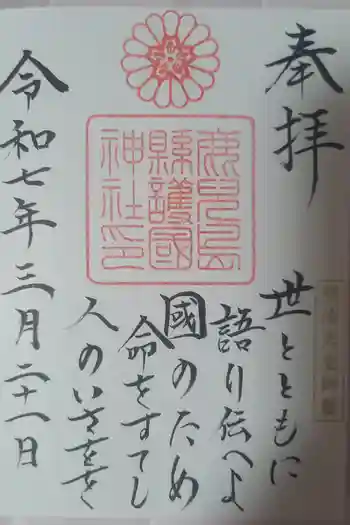 奉拝
世とともに
語り伝へよ
國のため
命をすてし
人のいさをを
鹿兒島
縣護國
神社印
令和七年三月二十一日